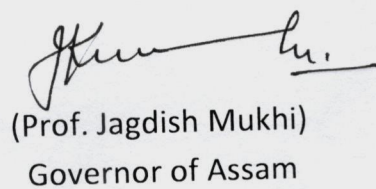 (Prof. Jagdish Mukhi)
Governor of Assam